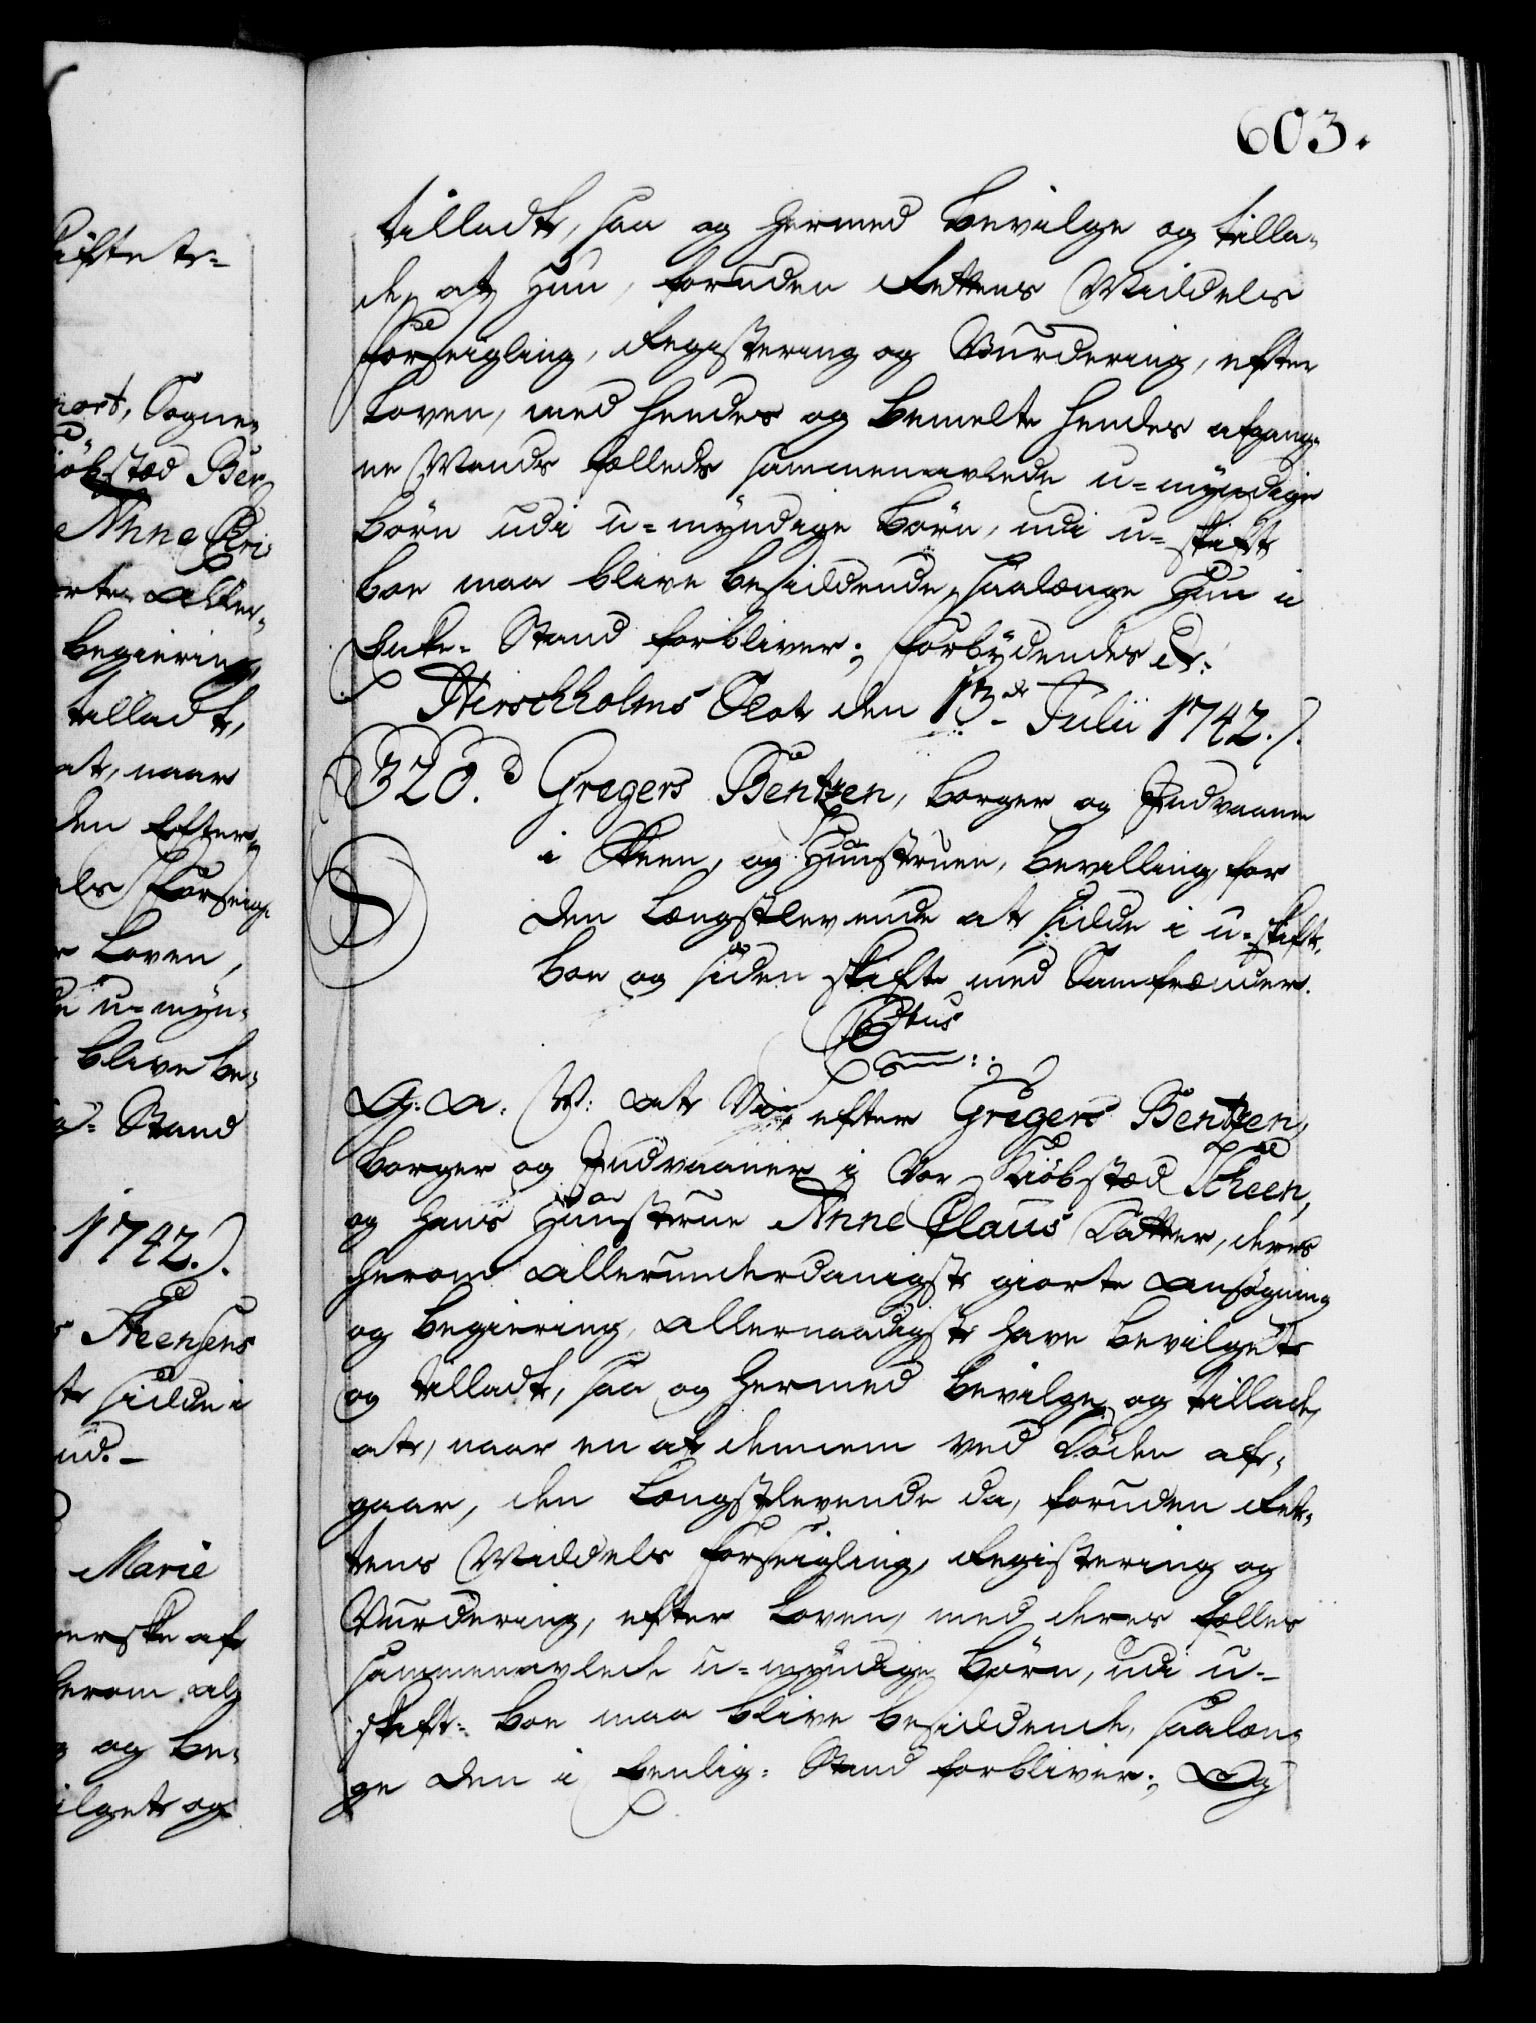 603.
tilladt, saa og hermed bevilge og tilla-
de, at hun, foruden Rettens Middels
Forseigling, Registering og Vurdering, efter
Loven, med hendes og bemelte hendes afgang-
ne Mands fælleds sammenavlede u-myndige
børn udi u-myndige børn, udi u-skift
boe maa blive besiddende, saalænge hun i
Enke-Stand forbliver; Forbydendes &:
Hirschholms Slot den 13de Julii 1742.
320. Gregers Bentzen, borger og Indvaaner
i Skeen, og Hunstruen, bevilling, for
den længstlevende at sidde i u-skift.
boe og siden skifte med Samfrænder.
G: A: V: at Vi efter Gregers Bentzen,
borger og Indvaaner i Vor Kiøbstæd Scheen,
og hans Hunstrue Anne Claus Datter, deres
herom allerunderdanigst giorte ansøgning
og begiering, allernaadigst have bevilget
og tilladt, saa og hermed bevilge og tillade,
at, naar en af dennem ved Døden af-
gaar, den Længstlevende da, foruden Ret-
tens Middels Forseigling, Registering og
Vurdering, efter Loven, med deres fælles
sammenavlede u-myndige børn, udi u-
skift-boe maa blive besiddende, saalæn-
ge den i Eenlig-Stand forbliver; Og
nort, Sogne-
Kiøbstæd Ber
Anne Chri-
aller-
begiering
tilladt,
at, naar
den Efter-
Forseig-
Loven,
u-myn-
blive be-
Stand
1742.
Steensens
sidde i
Marie
erske af
herom al-
og be-
ilget og